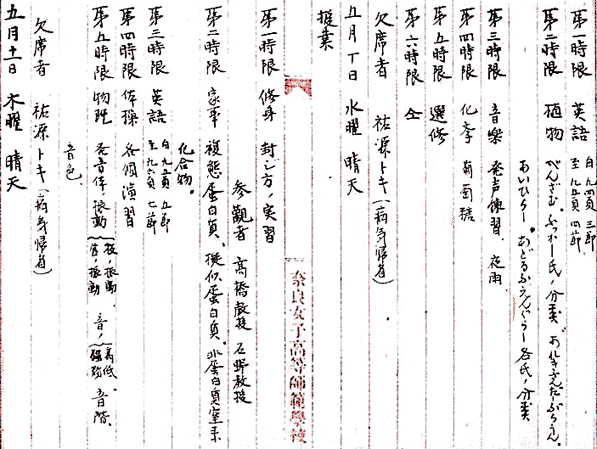 第一時限 英語 自九四頁三節 至九五頁四節
第二時限 植物 べんざむ.ふっかー氏ノ分類
あいひらー。あどるふえんぐらー各氏ノ分類
第三時限 音樂 発声練習. 夜雨
第四時限 化学 葡萄糖
第五時限 選修
第六時限 仝
欠席者 祐源トキ(病気帰省)
五月十日 水曜 晴天
授業
奈良女子高等師範學校
第一時限 修身 封じ方ノ実習
参観者 高橋教授 石野教授
第二時限 家事 複態蛋白質、擬似蛋白質。非蛋白質窒素
化合物。
第三時限 英語 自九五頁五節 至九六頁七節
第四時限 体操 各個演習
第五時限 物理 発音体ノ振動 音ノ高低 強弱 音階
音色。
欠席者 祐源トキ(病気帰省)
五月十一日 木曜 晴天